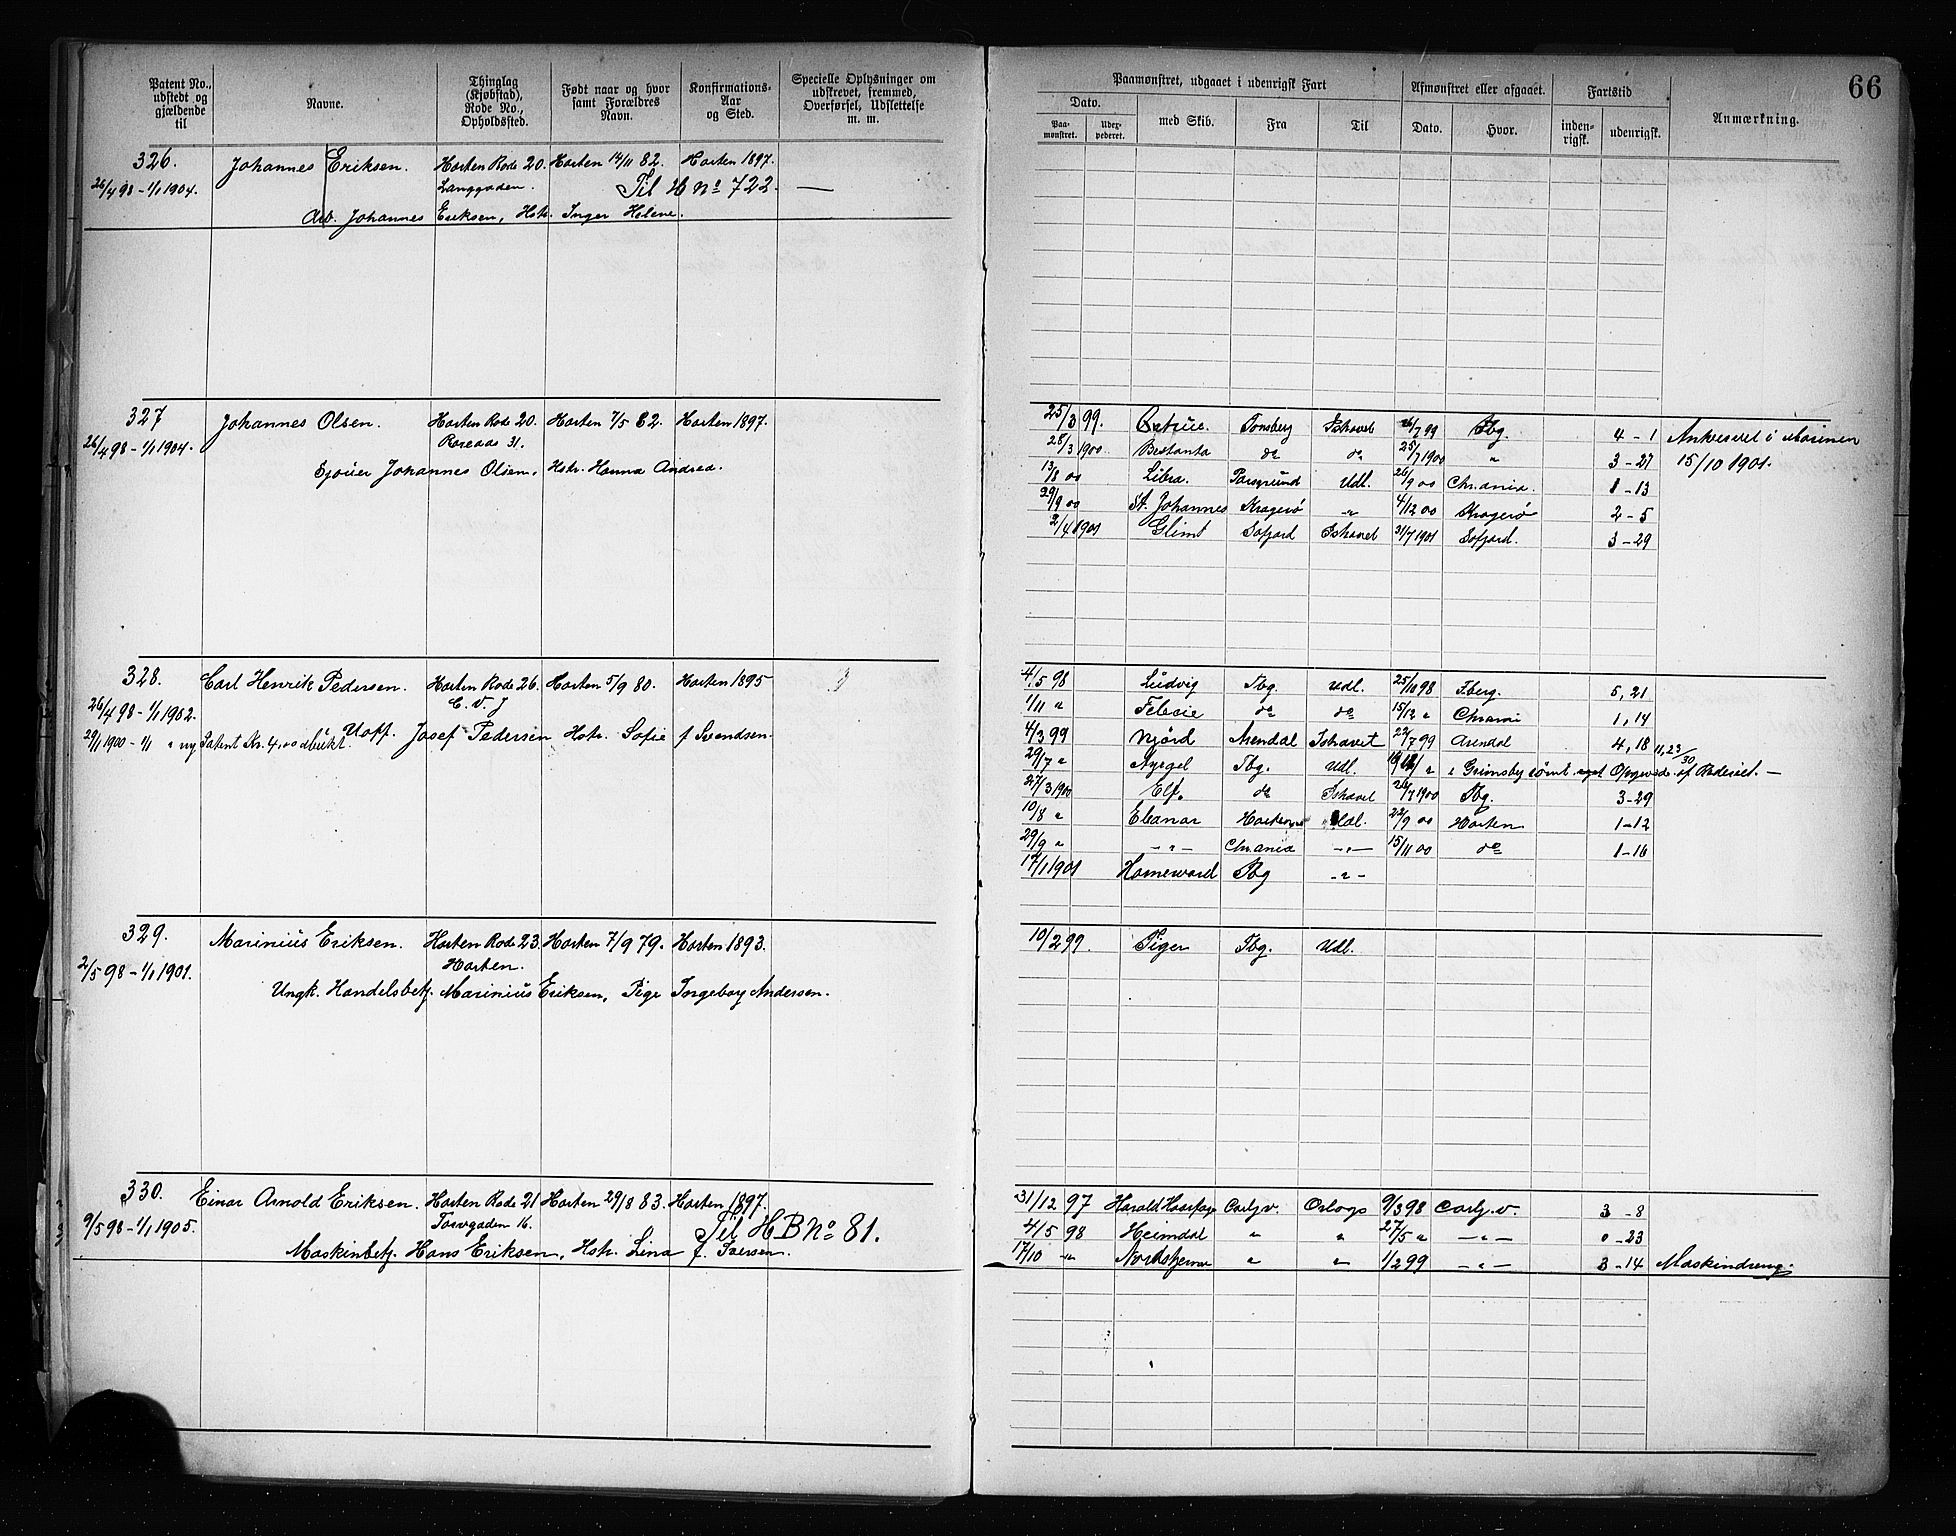 66
Patent No., udstedt og gjældende til
Navne.
Thinglag (Kjøbstad), Rode No., Opholdssted.
Født naar og hvor samt Forældres Navn.
Konfirmations-Aar og Sted.
Specielle Oplysninger om udskrevet, fremmed, Overførsel, Udslettelse m. m.
Paamønstret, udgaaet i udenrigsk Fart
Dato.
Paa-mønstret.
Udex-pederet.
med Skib.
Fra
Til
Afmønstret eller afgaaet.
Dato.
Hvor.
Fartstid
inden-rigsk.
udenrigsk.
Anmærkning.
326. Johannes Eriksen. Horten Rode 20. Horten 14/11 82. Horten 1897.
26/4 98 - 1/1 1904. Langgaden. Til H No 722. —
Arb. Johannes Eriksen, Hstr. Inger Helene.
327 Johannes Olsen. Horten Rode 20. Horten 7/5 82. Horten 1897.
26/4 98 - 1/1 1904. 31.
Johannes Olsen, Hstr. Hanna Andrea.
25/3 99. Tønsberg Ishavet 26/7 99 Tbg. 4 - 1 i Marinen
28/3 1900 do do 25/7 1900 " 3 - 27 15/10 1901.
13/8 00 Libra. Porsgrund Udl. 26/9 00 Chr.ania. 1 - 13
29/9 00 St. Johannes Kragerø " 4/12 00 Kragerø 2 - 5
2/4 1901 Glimt Ishavet 31/7 1901 3 - 29
328. Carl Henrik Pedersen. Horten Rode 26. Horten 5/9 80. Horten 1895
26/4 98 - 1/1 1902.
29/1 1900 - 1/1 " ny Patent Kr. 4,00
Josef Pedersen Hstr. Sofie f Svendsen.
4/5 98 Ludvig Tbg. Udl. 25/10 98 5, 21
1/11 " do do 15/12 " 1, 14
4/3 99 Njörd Arendal Ishavet 22/7 99 Arendal 4, 18
29/7 " Tbg. Udl. Grimsby 11, 23/30
27/3 1900 Elf. do Ishavet 26/7 1900 Tbg. 3 - 29
10/8 " Eleanor Udl. 22/9 00 Horten 1 - 12
29/9 " - " - Chr.ania - " - 15/11 00 do 1 - 16
17/1 1901 Homeward Tbg - " -
329. Marinius Eriksen. Horten Rode 23. Horten 7/9 79. Horten 1893.
2/5 98 - 1/1 1901. Horten.
Ungk. Handelsbetj. Marinius Eriksen, Pige Ingeborg Andersen.
10/2 99. Tiger Tbg. Udl.
330. Einar Arnold Eriksen. Horten Rode 21 Horten 29/8 83. Horten 1897.
9/5 98 - 1/1 1905. Torvgaden 16. Til H B No 81.
Maskinbetj. Hans Eriksen, Hstr. Lina f. Iversen.
31/12 97 Harald Haarfagre Carljv. Orlogs 9/3 98 Carlj.v. 3 - 8
4/5 98 Heimdal " " 27/5 " - " - 0 - 23
17/10 " Nordstjernen " " 1/2 99 - " - 3 - 14 Maskindreng.